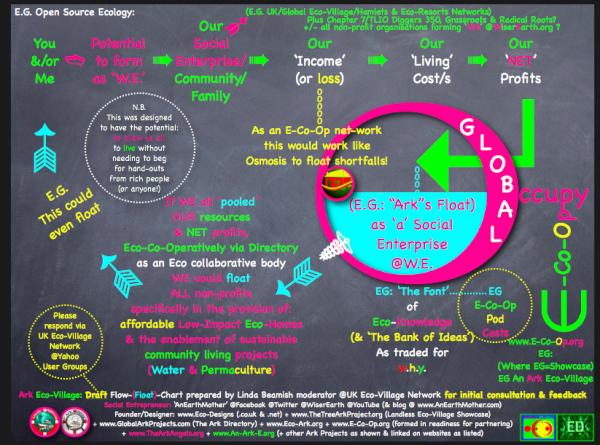 E.G. Open Source Ecology:
(E.G. UK/Global Eco-Village/Hamlets & Eco-Resorts Networks)
Plus Chapter 7/TLIO Diggers 350, Grassroots & Radical Roots?
+/- all non-profit organisations forming 'WE' @WiserEarth.org ?
You
&/or
Me
Potential
to form
as 'W.E.'
Our
Social
Enterprise/
Community/
Family
Our
'Income'
(or loss)
Our
'Living'
Cost/s
Our
'NET'
Profits
N.B.
This was designed
to have the potential:
to allow us all
to live without
needing to beg
for hand-outs
from rich people
(or anyone!)
As an E-Co-Op net-work
this would work like
Osmosis to float shortfalls!
E.G.
This could
even float
GLOBAL
(E.G.: "Ark"s Float)
as 'a' Social
Enterprise
@W.E.
Occupy
E-Co-Op
If WE all 'pooled
OUR resources
& NET profits,
Eco-Co-Operatively via Directory
as an Eco collaborative body
WE could float
ALL non-profits
specifically in the provision of:
affordable Low-Impact Eco-Homes
& the enablement of sustainable
community living projects
(Water & Permaculture)
EG: 'The Font'............ EG
of
Eco-Knowledge
(& 'The Bank of Ideas')
As traded for
w.h.y.
E-Co-Op
Pod
Casts
www.E-Co-Op.org
EG:
(Where EG=Showcase)
EG An Ark Eco-Village
Please
respond via
UK Eco-Village
Network
@Yahoo
User Groups
Ark Eco-Village: Draft Flow-(Float)-Chart prepared by Linda Beamish moderator @UK Eco-Village Network for initial consultation & feedback
Social Entrepreneur: 'AnEarthMother' @Facebook @Twitter @WiserEarth @YouTube (& blog @ www.AnEarthMother.com)
Founder/Designer: www.Eco-Designs (.co.uk & .net) + www.TheTreeArkProject.org (Landless Eco-Village Showcase)
+ www.GlobalArkProjects.com (The Ark Directory) + www.Eco-Ark.org + www.E-Co-Op.org (formed in readiness for partnering)
+ www.TheArkAngels.org + www.An-Ark-E.org (+ other Ark Projects as shown & linked on websites as listed)